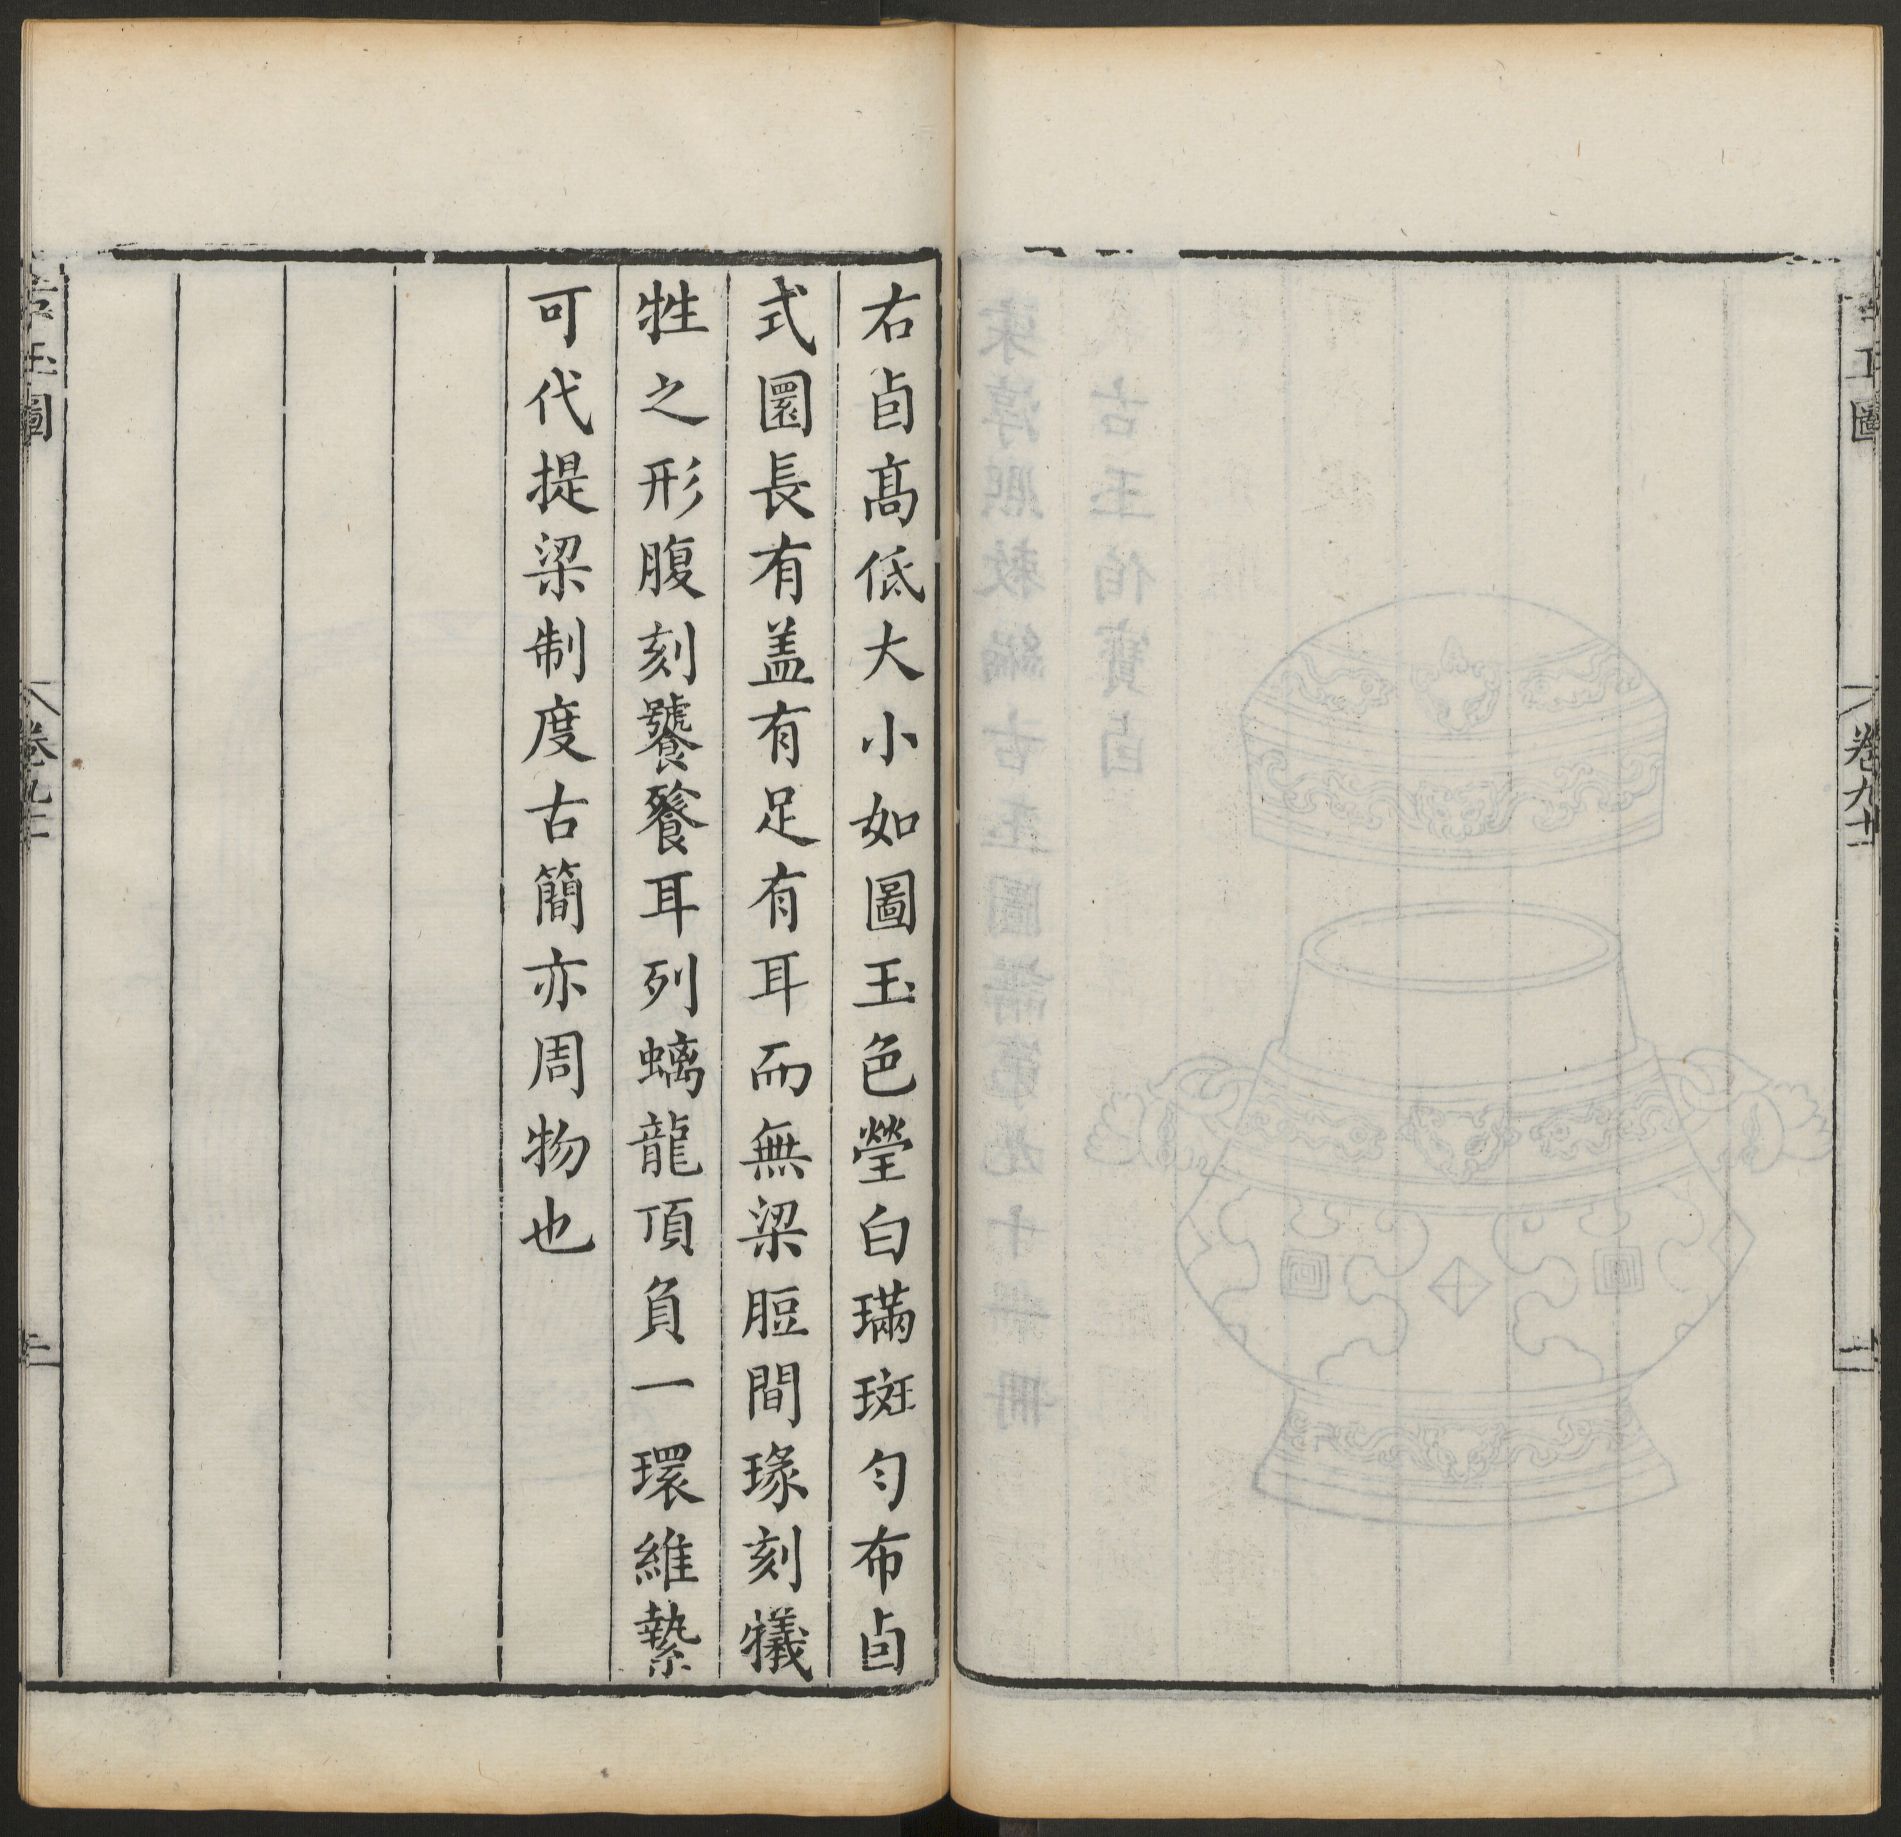 右卣髙低大小如圖玉色瑩白璊斑勻布卣
式圜長有盖有足有耳而無梁脰間瑑刻犠
牲之形腹刻饕餮耳列螭龍頂負一環維縶
可代提梁制度古簡亦周物也